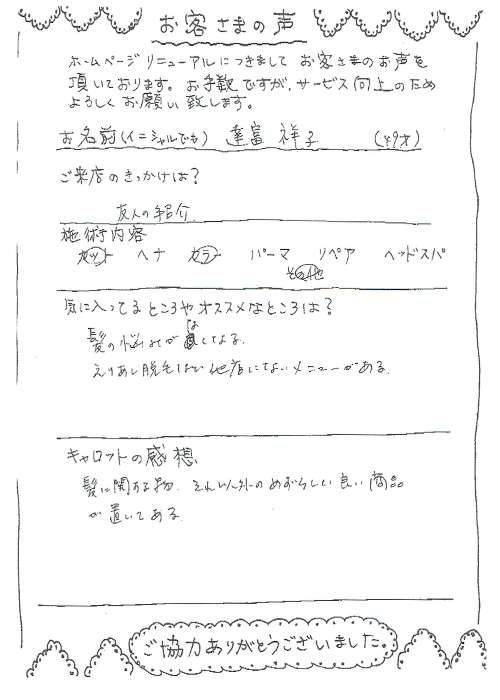 お客さまの声
ホームページリニューアルにつきまして お客さまのお声を
頂いております。お手数ですが、サービス向上のため
よろしくお願い致します。
お名前(イニシャルでも) 達富 祥子 (49才)
ご来店のきっかけは?
友人の紹介
施術内容
カット ヘナ カラー パーマ リペア ヘッドスパ
その他
気に入ってるところやオススメなところは?
髪の悩みがなくなる。
えりあし脱毛など他店にないメニューがある。
キャロットの感想
髪に関する物、それ以外のめずらしい良い商品
が置いてある。
ご協力ありがとうございました。